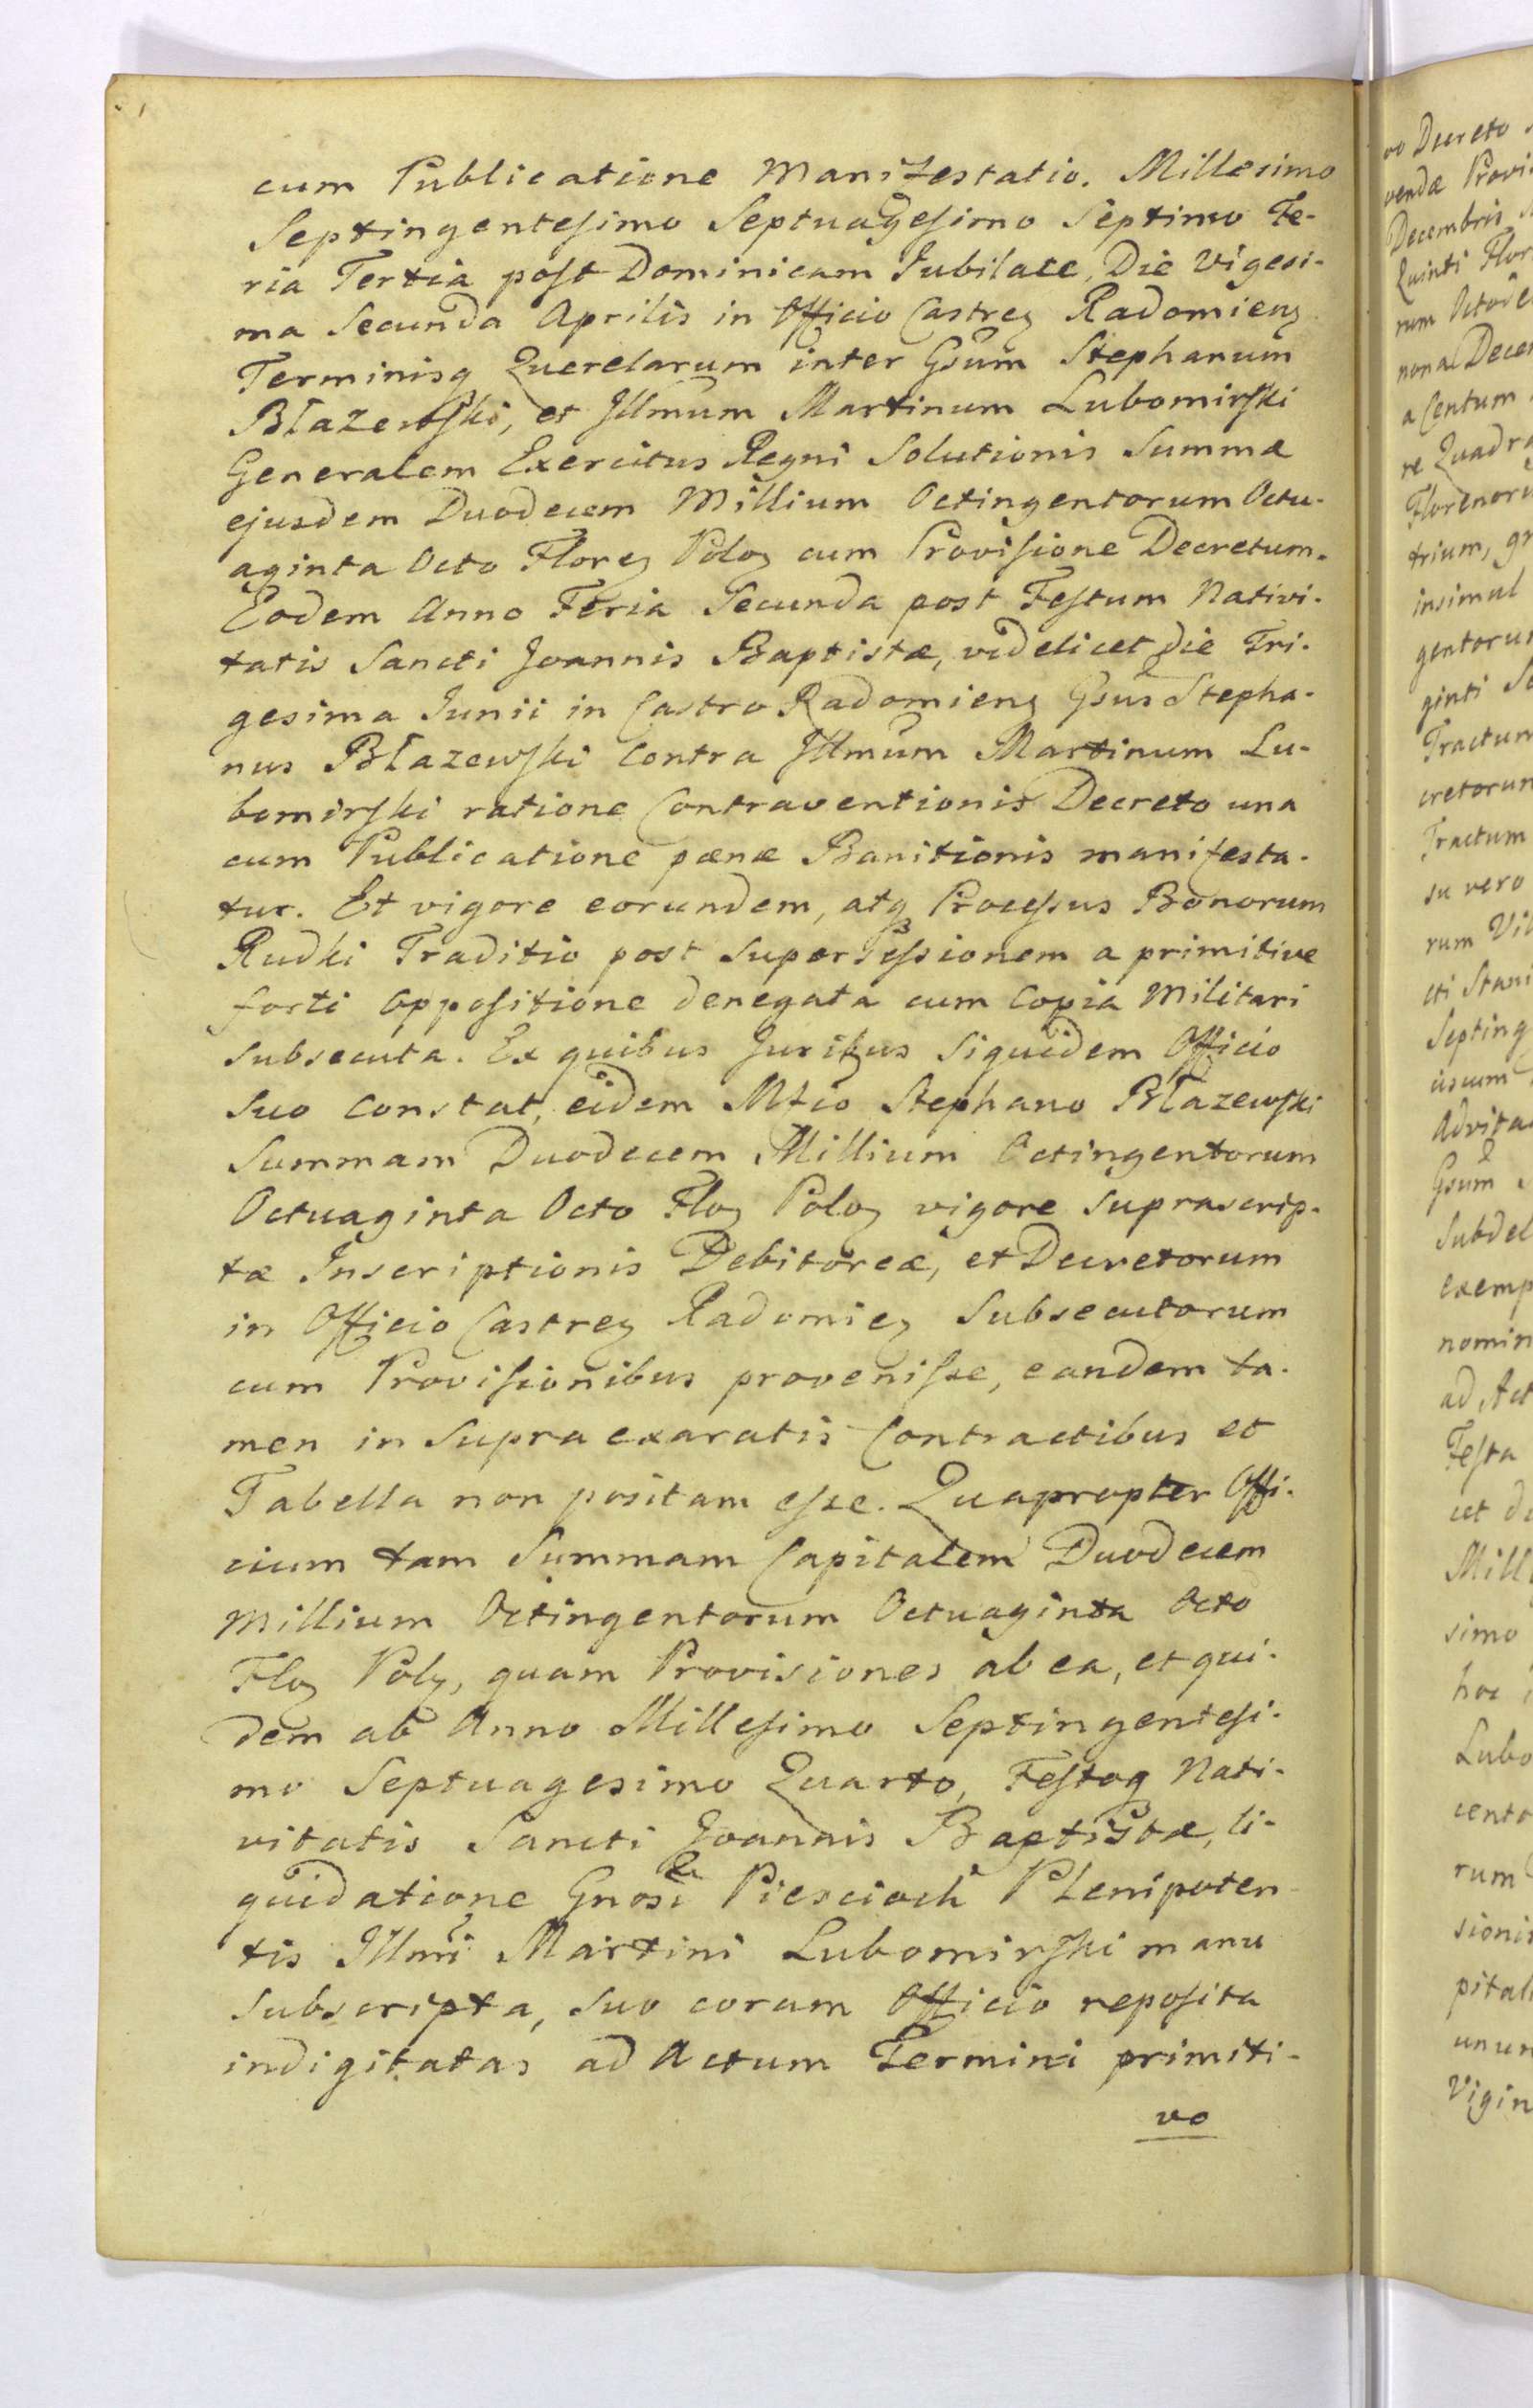 cum Publicatione Manifestatio. Millesimo
Septingentesimo Septuagesimo Septimo Fe-
ria Tertia post Dominicam Jubilate, Die Vigesi-
ma Secunda Aprilis in Officio Castreꝫ Radomienꝫ
Terminisqꝫ Querelarum inter Gsum Stephanum
Błazewski, et Illmum Martinum Lubomirski
Generalem Exercitus Regni Solutionis Summæ
ejusdem Duodecem Millium Octingentorum Octu-
aginta Octo Floreꝫ Poloꝫ cum Provisione Decretum.
Eodem Anno Feria Secunda post Festum Nativi-
tatis Sancti Joannis Baptistæ, videlicet die Tri-
gesima Junii in Castro Radomienꝫ Gsus Stepha-
nus Błazewski Contra Illmum Martinum Lu-
bomirski ratione Contraventionis Decreto una
cum Publicatione pænæ Banitionis manifesta-
tur. Et vigore eorundem, atqꝫ Processus Bonorum
Rudki Traditio post Supersessionem a primitive
forti oppositione denegata cum Copia Militari
subsecuta. Ex quibus Juribus siquidem Officio
Suo Constat, eidem Mfico Stephano Błazewski
Summam Duodecem Millium Octingentorum
Octuaginta Octo Floꝫ Poloꝫ vigore suprascrip-
tæ Inscriptionis Debitoreæ, et Decretorum
in Officio Castreꝫ Radomieꝫ Subsecutorum
cum Provisionibus provenisse, eandem ta-
men in supra exaratis Contractibus et
Tabella non positam esse. Quapropter Offi-
cium tam Summam Capitalem Duodecem
Millium Octingentorum Octuaginta Octo
Floꝫ Polꝫ, quam Provisiones ab ea, et qui-
dem ab Anno Millesimo Septingentesi-
mo Septuagesimo Quarto, Festoqꝫ Nati-
vitatis Sancti Joannis Baptistæ, li-
quidatione Gnosi Piescioch Plenipoten-
tis Illmi Martini Lubomirski manu
subscripta, suo coram Officio reposita
indigitatas ad Actum Termini primiti-
vo
vo Decreto
vendæ Provi
Decembris
Quinti Flor
rum Octode
nona Decem
a Centum
re Quadra
Florenoru
trium, gr
insimul
gentorum
ginti Se
Tractum
cretorum
Tractum
su vero
rum Vi
cti Stani
Septing
Advita
Gsum
Subdel
exemp
nomin
ad Act
Festa
cet di
Mill
simo
hoc
Lubo
cento
rum
sionis
pitali
unum
Vigin